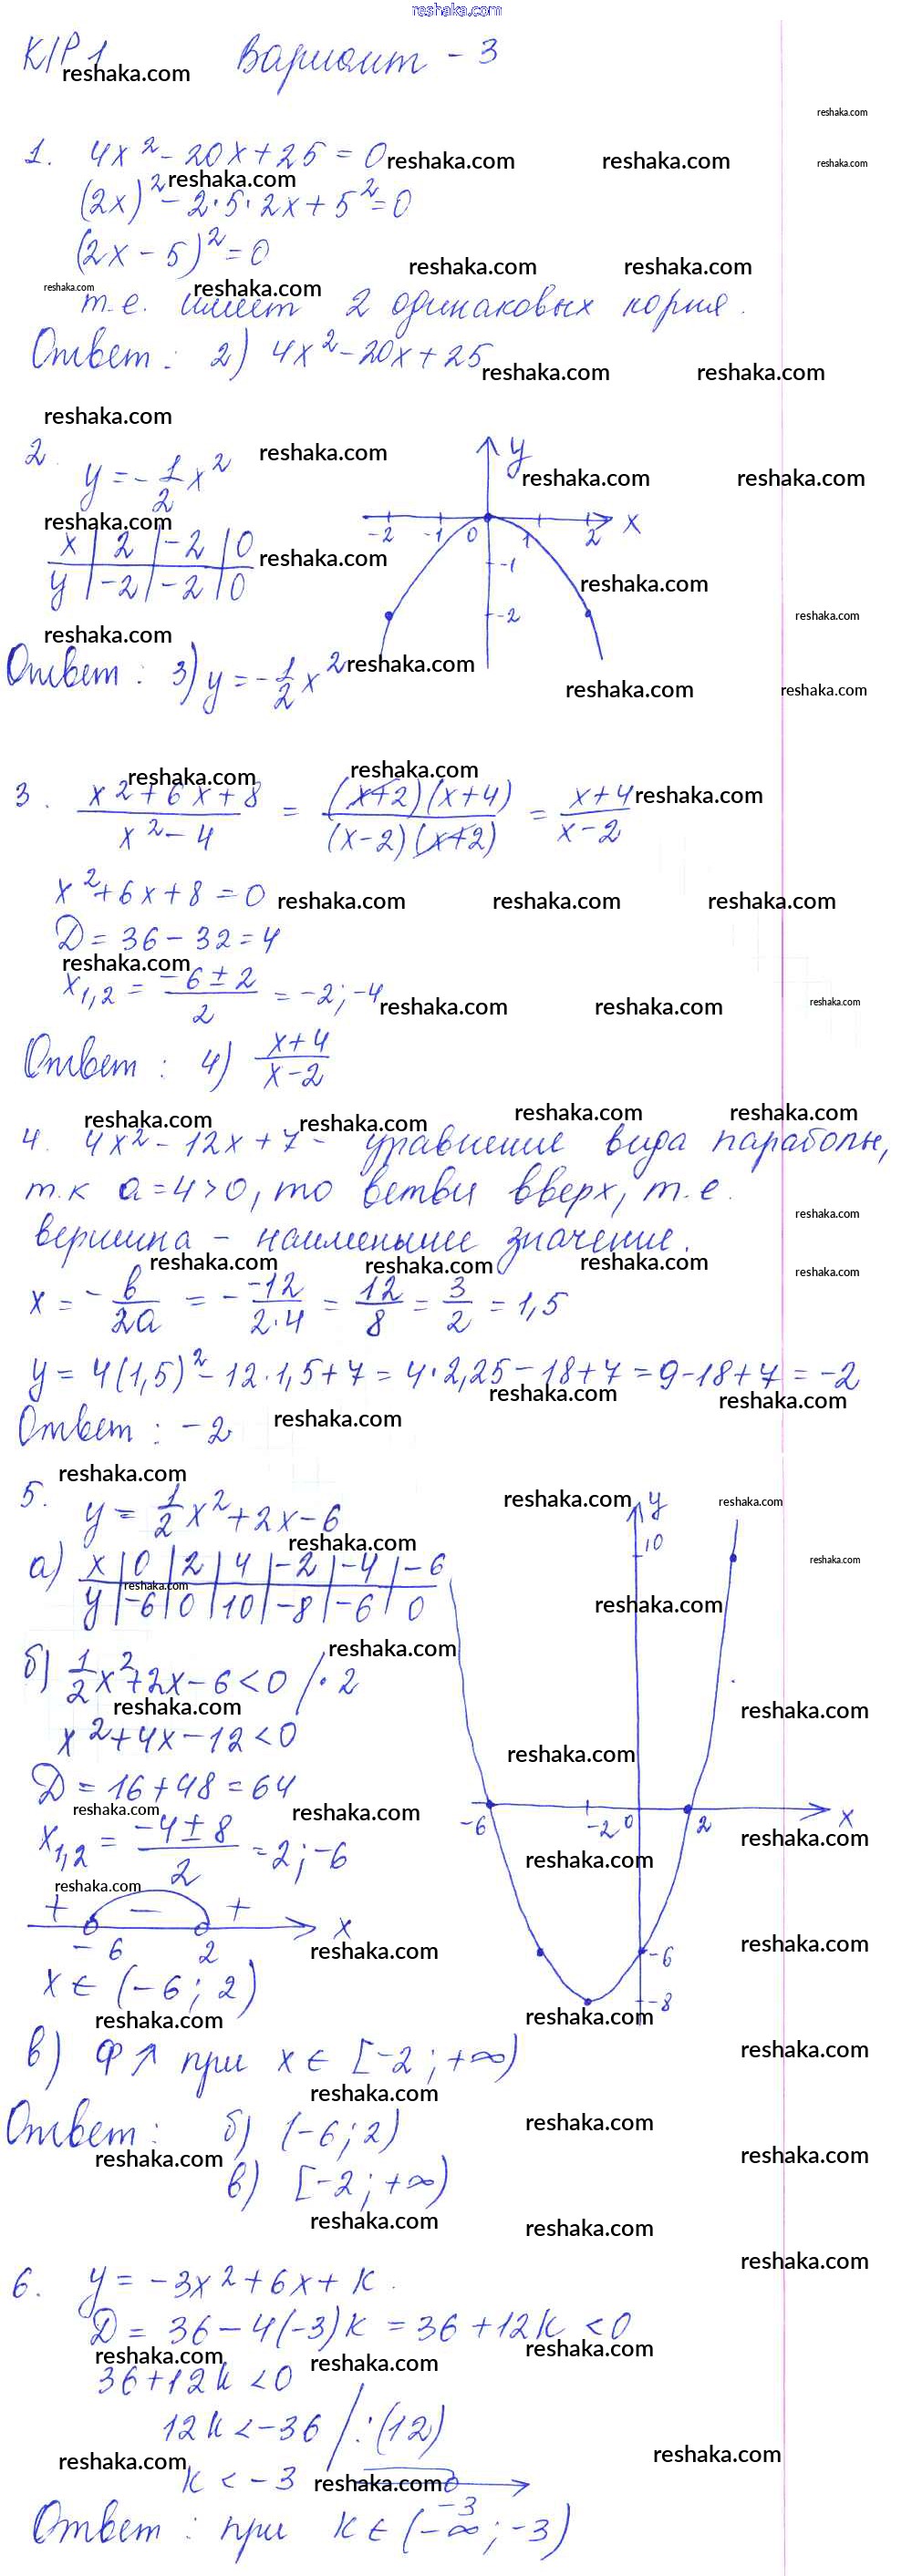 reshaka.com
К/Р 1 Вариант - 3
1. 4x² - 20x + 25 = 0
(2x)² - 2·5·2x + 5² = 0
(2x - 5)² = 0
т.е. имеет 2 одинаковых корня.
Ответ: 2) 4x² - 20x + 25
2. y = -1/2 x²
x | 2 | -2 | 0
y | -2 | -2 | 0
y
-2 -1 0 1 2 x
-1
-2
Ответ: 3) y = -1/2 x²
3. (x² + 6x + 8)/(x² - 4) = ((x+2)(x+4))/((x-2)(x+2)) = (x+4)/(x-2)
x² + 6x + 8 = 0
D = 36 - 32 = 4
x₁,₂ = (-6 ± 2)/2 = -2; -4
Ответ: 4) (x+4)/(x-2)
4. 4x² - 12x + 7 - уравнение вида параболы,
т.к a = 4 > 0, то ветви вверх, т.е.
вершина - наименьшее значение.
x = -b/2a = -(-12)/(2·4) = 12/8 = 3/2 = 1,5
y = 4(1,5)² - 12·1,5 + 7 = 4·2,25 - 18 + 7 = 9 - 18 + 7 = -2
Ответ: -2
5. y = 1/2 x² + 2x - 6
а) x | 0 | 2 | 4 | -2 | -4 | -6
y | -6 | 0 | 10 | -8 | -6 | 0
y
10
-6 -2 0 2 x
-6
-8
б) 1/2 x² + 2x - 6 < 0 /·2
x² + 4x - 12 < 0
D = 16 + 48 = 64
x₁,₂ = (-4 ± 8)/2 = 2; -6
+ - +
-6 2 x
x ∈ (-6; 2)
в) Ф ↗ при x ∈ [-2; +∞)
Ответ: б) (-6; 2)
в) [-2; +∞)
6. y = -3x² + 6x + k.
D = 36 - 4(-3)k = 36 + 12k < 0
36 + 12k < 0
12k < -36 /:(12)
k < -3
-3
Ответ: при k ∈ (-∞; -3)